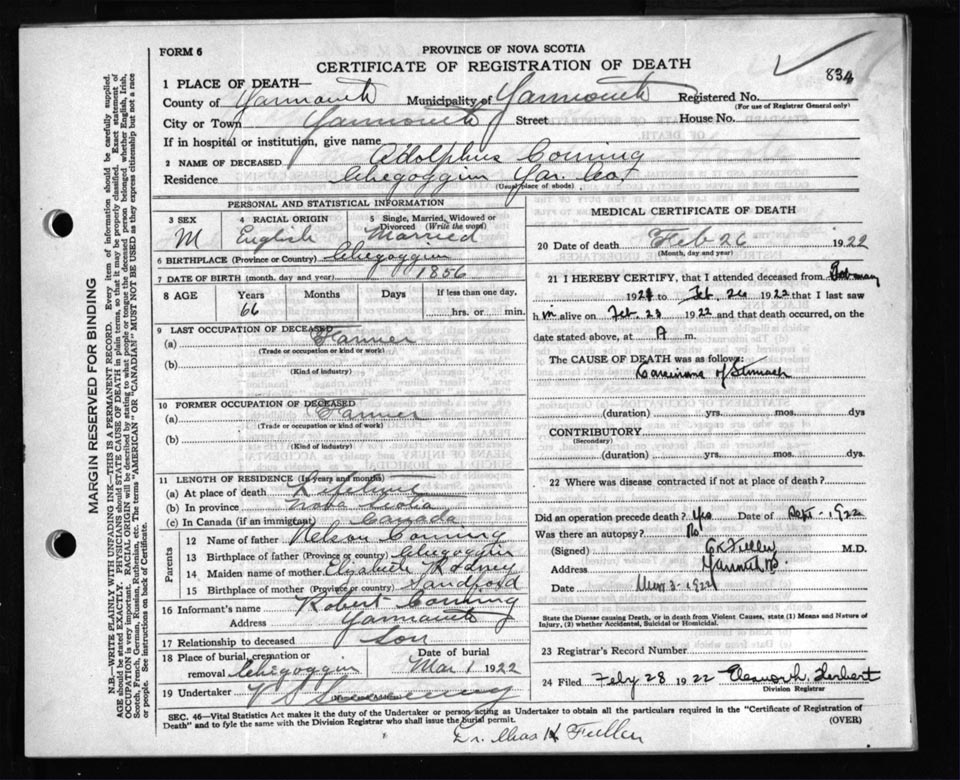 FORM 6
PROVINCE OF NOVA SCOTIA
CERTIFICATE OF REGISTRATION OF DEATH
834
1 PLACE OF DEATH—
County of Yarmouth Municipality of Yarmouth Registered No.
(For use of Registrar General only)
City or Town Yarmouth Street House No.
If in hospital or institution, give name
2 NAME OF DECEASED Adolphus Corning
Residence Chegoggin Yar. Co
(Usual place of abode)
PERSONAL AND STATISTICAL INFORMATION
3 SEX M
4 RACIAL ORIGIN English
5 Single, Married, Widowed or Divorced (Write the word) Married
6 BIRTHPLACE (Province or Country) Chegoggin
7 DATE OF BIRTH (month, day and year) 1856
8 AGE Years Months Days If less than one day,
66 hrs. or min.
9 LAST OCCUPATION OF DECEASED
(a) Farmer
(Trade or occupation or kind or work)
(b)
(Kind of industry)
10 FORMER OCCUPATION OF DECEASED
(a) Farmer
(Trade or occupation or kind or work)
(b)
(Kind of industry)
11 LENGTH OF RESIDENCE (In years and months)
(a) At place of death Lifetime
(b) In province Nova Scotia
(c) In Canada (if an immigrant) Canada
Parents
12 Name of father Nelson Corning
13 Birthplace of father (Province or country) Chegoggin
14 Maiden name of mother Elizabeth Rodney
15 Birthplace of mother (Province or country) Sandford
16 Informant's name Robert Corning
Address Yarmouth
17 Relationship to deceased Son
18 Place of burial, cremation or removal Chegoggin
Date of burial Mar 1 1922
19 Undertaker
MEDICAL CERTIFICATE OF DEATH
20 Date of death Feb 26 1922
(Month, day and year)
21 I HEREBY CERTIFY, that I attended deceased from
1921 to Feb. 26 1922 that I last saw
him alive on Feb. 23 1922 and that death occurred, on the
date stated above, at A m.
The CAUSE OF DEATH was as follows:
Carcinoma of Stomach
(duration) yrs. mos. dys
CONTRIBUTORY
(Secondary)
(duration) yrs. mos. dys.
22 Where was disease contracted if not at place of death?
Did an operation precede death? Yes Date of Sept - 1922
Was there an autopsy? No
(Signed) CK Fuller M.D.
Address Yarmouth NS
Date Mar 3 - 1922
State the Disease causing Death, or in death from Violent Causes, state (1) Means and Nature of
Injury, (2) whether Accidental, Suicidal or Homicidal.
23 Registrar's Record Number
24 Filed Feby 28 1922 Eleanor L. Herbert
Division Registrar
SEC. 46—Vital Statistics Act makes it the duty of the Undertaker or person acting as Undertaker to obtain all the particulars required in the "Certificate of Registration of
Death" and to fyle the same with the Division Registrar who shall issue the burial permit.
(OVER)
Dr. Chas K Fuller
MARGIN RESERVED FOR BINDING
N.B.—WRITE PLAINLY WITH UNFADING INK—THIS IS A PERMANENT RECORD. Every item of information should be carefully supplied.
AGE should be stated EXACTLY. PHYSICIANS should STATE CAUSE OF DEATH in plain terms, so that it may be properly classified. Exact statement of
OCCUPATION is very important. RACIAL ORIGIN will be described by stating to what people or tongue the deceased person belonged whether English, Irish,
Scotch, French, German, Russian, Ruthenian, etc. The terms "AMERICAN" OR "CANADIAN" MUST NOT BE USED as they express citizenship but not a race
or people. See instructions on back of Certificate.